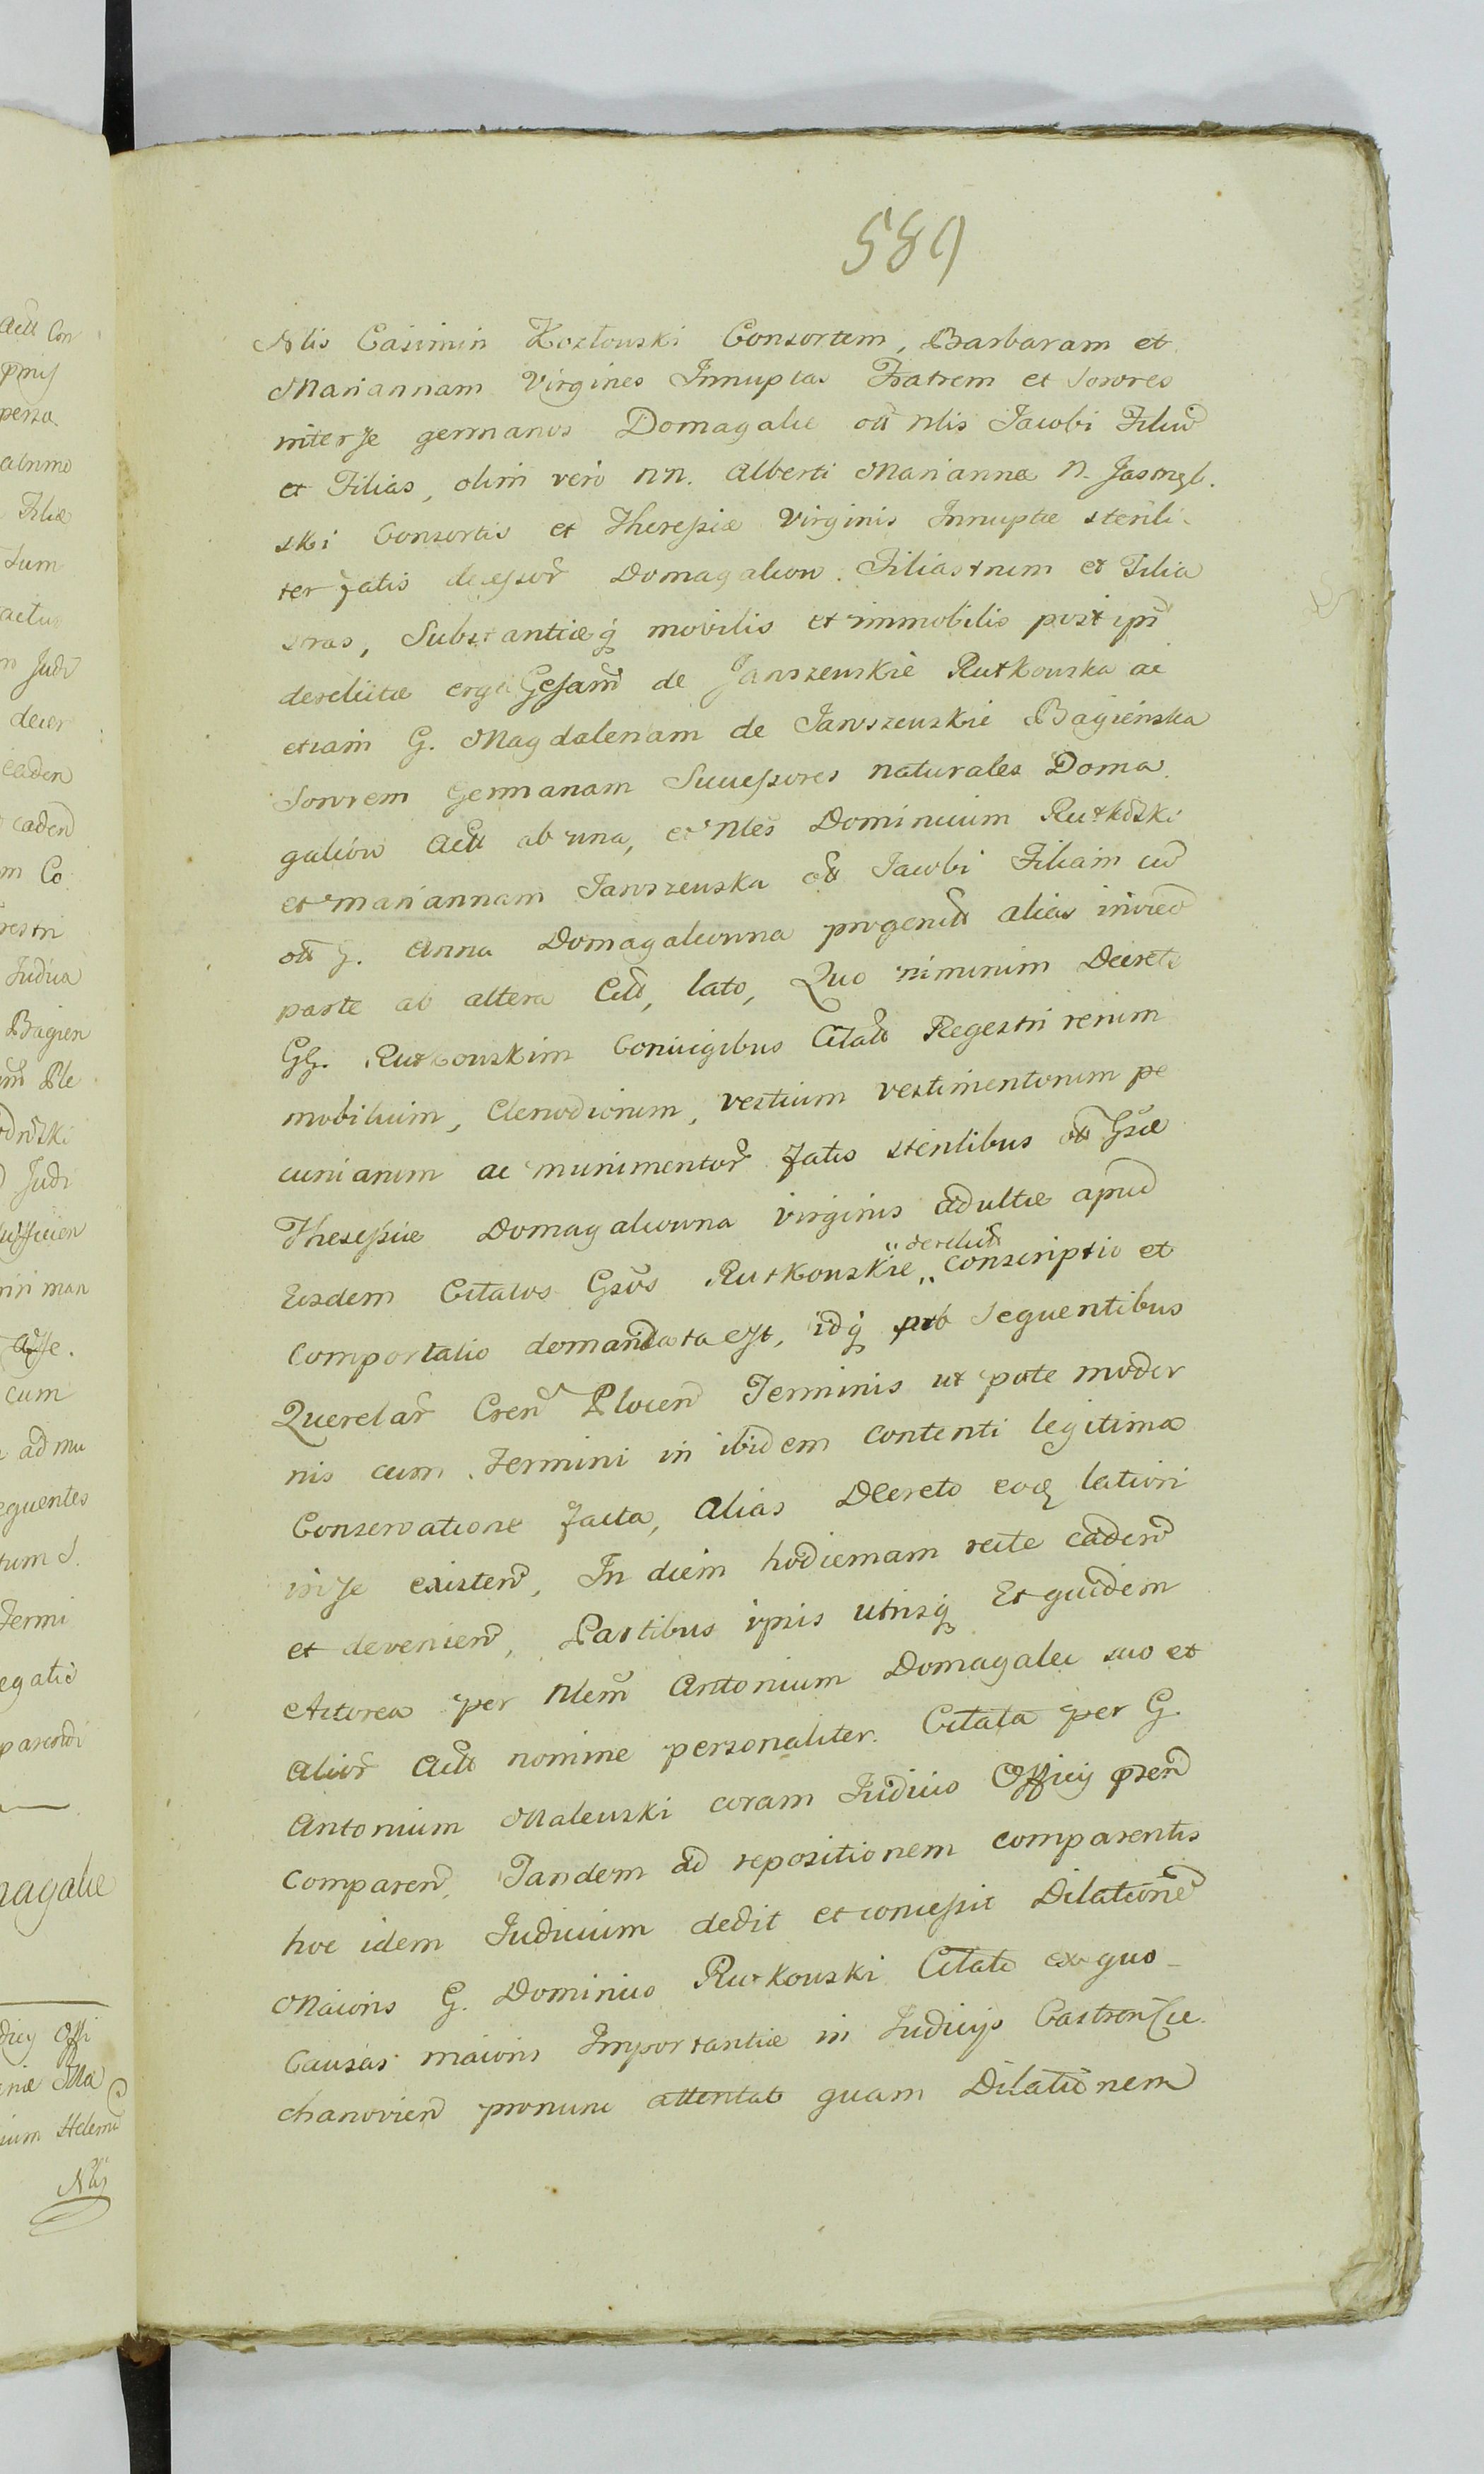 589
Nlis Casimiri Kozłowski Consortem, Barbaram et
Mariannam Virgines Innuptas Fratrem et Sorores
inter se germanos Domagalie oti Nlis Jacobi Filiu
et Filias, olim vero NN. Alberti Mariannæ N.
ski Consortis et Theressiæ Virginis Innuptæ sterili-
ter fatis decessor Domagaliow Filiastrum et Filia
stras, Substantiæq movilis et immobilis post ipn
derelictæ erga Gesam de Jaroszewskie Rutkowska ac
etiam G. Magdalenam de Jaroszewskie Bagieńska
Sororem Germanam Successores naturales Doma
galiów Act ab una, et Nles Dominicum Rutkowski
et Mariannam Jaroszewska ott Jacobi Filiam cu
ott G. Anna Domagaliowna progenit alias invice
parte ab altera Citt, lato, Quo nimirum Decreto
GG. Rutkowskim Coniugibus Citatt Regestri rerum
mobilium, Clenodiorum, vestium vestimentorum pe
cuniarum ac munimentor fatis sterilibus ott Gsæ
Theressiæ Domagaliowna virginis adultæ apud
Eosdem Citatos Gsos Rutkowskie „derelict„ Conscriptio et
Comportatio demandata est, idq pro Sequentibus
Querelar Cren Plocen Terminis ut pote moder
nis cum Termini in ibidem contenti legitima
Conservatione facta, alias Decreto eoq lationi
in se existen, In diem hodiernam recte caden
et devenien, Partibus ipnis utrisq Et quidem
Actorea per Nlem Antonium Domagalec suo et
alior Act nomine personaliter. Citata per G.
Antonium Malewski coram Judicio Officij pren
Comparen, Tandem ad repositionem comparentis
hoc idem Judicium dedit et concessit Dilatione
Maioris G. Dominico Rutkowski Citato ex quo
Causas maioris Importantiæ in Judicijs Castren Cie
chanovien pronunc attentat quam Dilationem